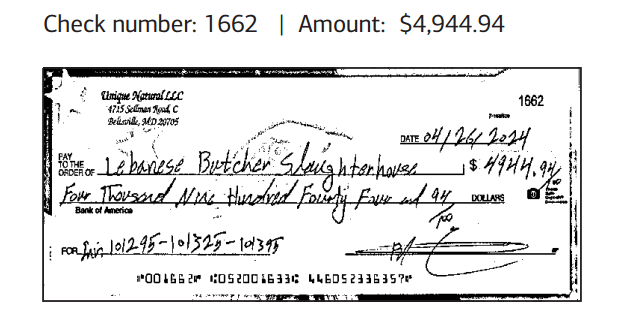 Check number: 1662 | Amount: $4,944.94
Unique Natural LLC
4715 Sellman Road, C
Beltsville, MD 20705
1662
DATE 04/26/2024
PAY TO THE ORDER OF Lebanese Butcher Slaughterhouse $ 4944.94
Four Thousand Nine Hundred Fourty Four and 94 DOLLARS
Bank of America
FOR Inv. 101295-101325-101395
⑈001662⑈ ⑆052001633⑆ 446052336357⑈